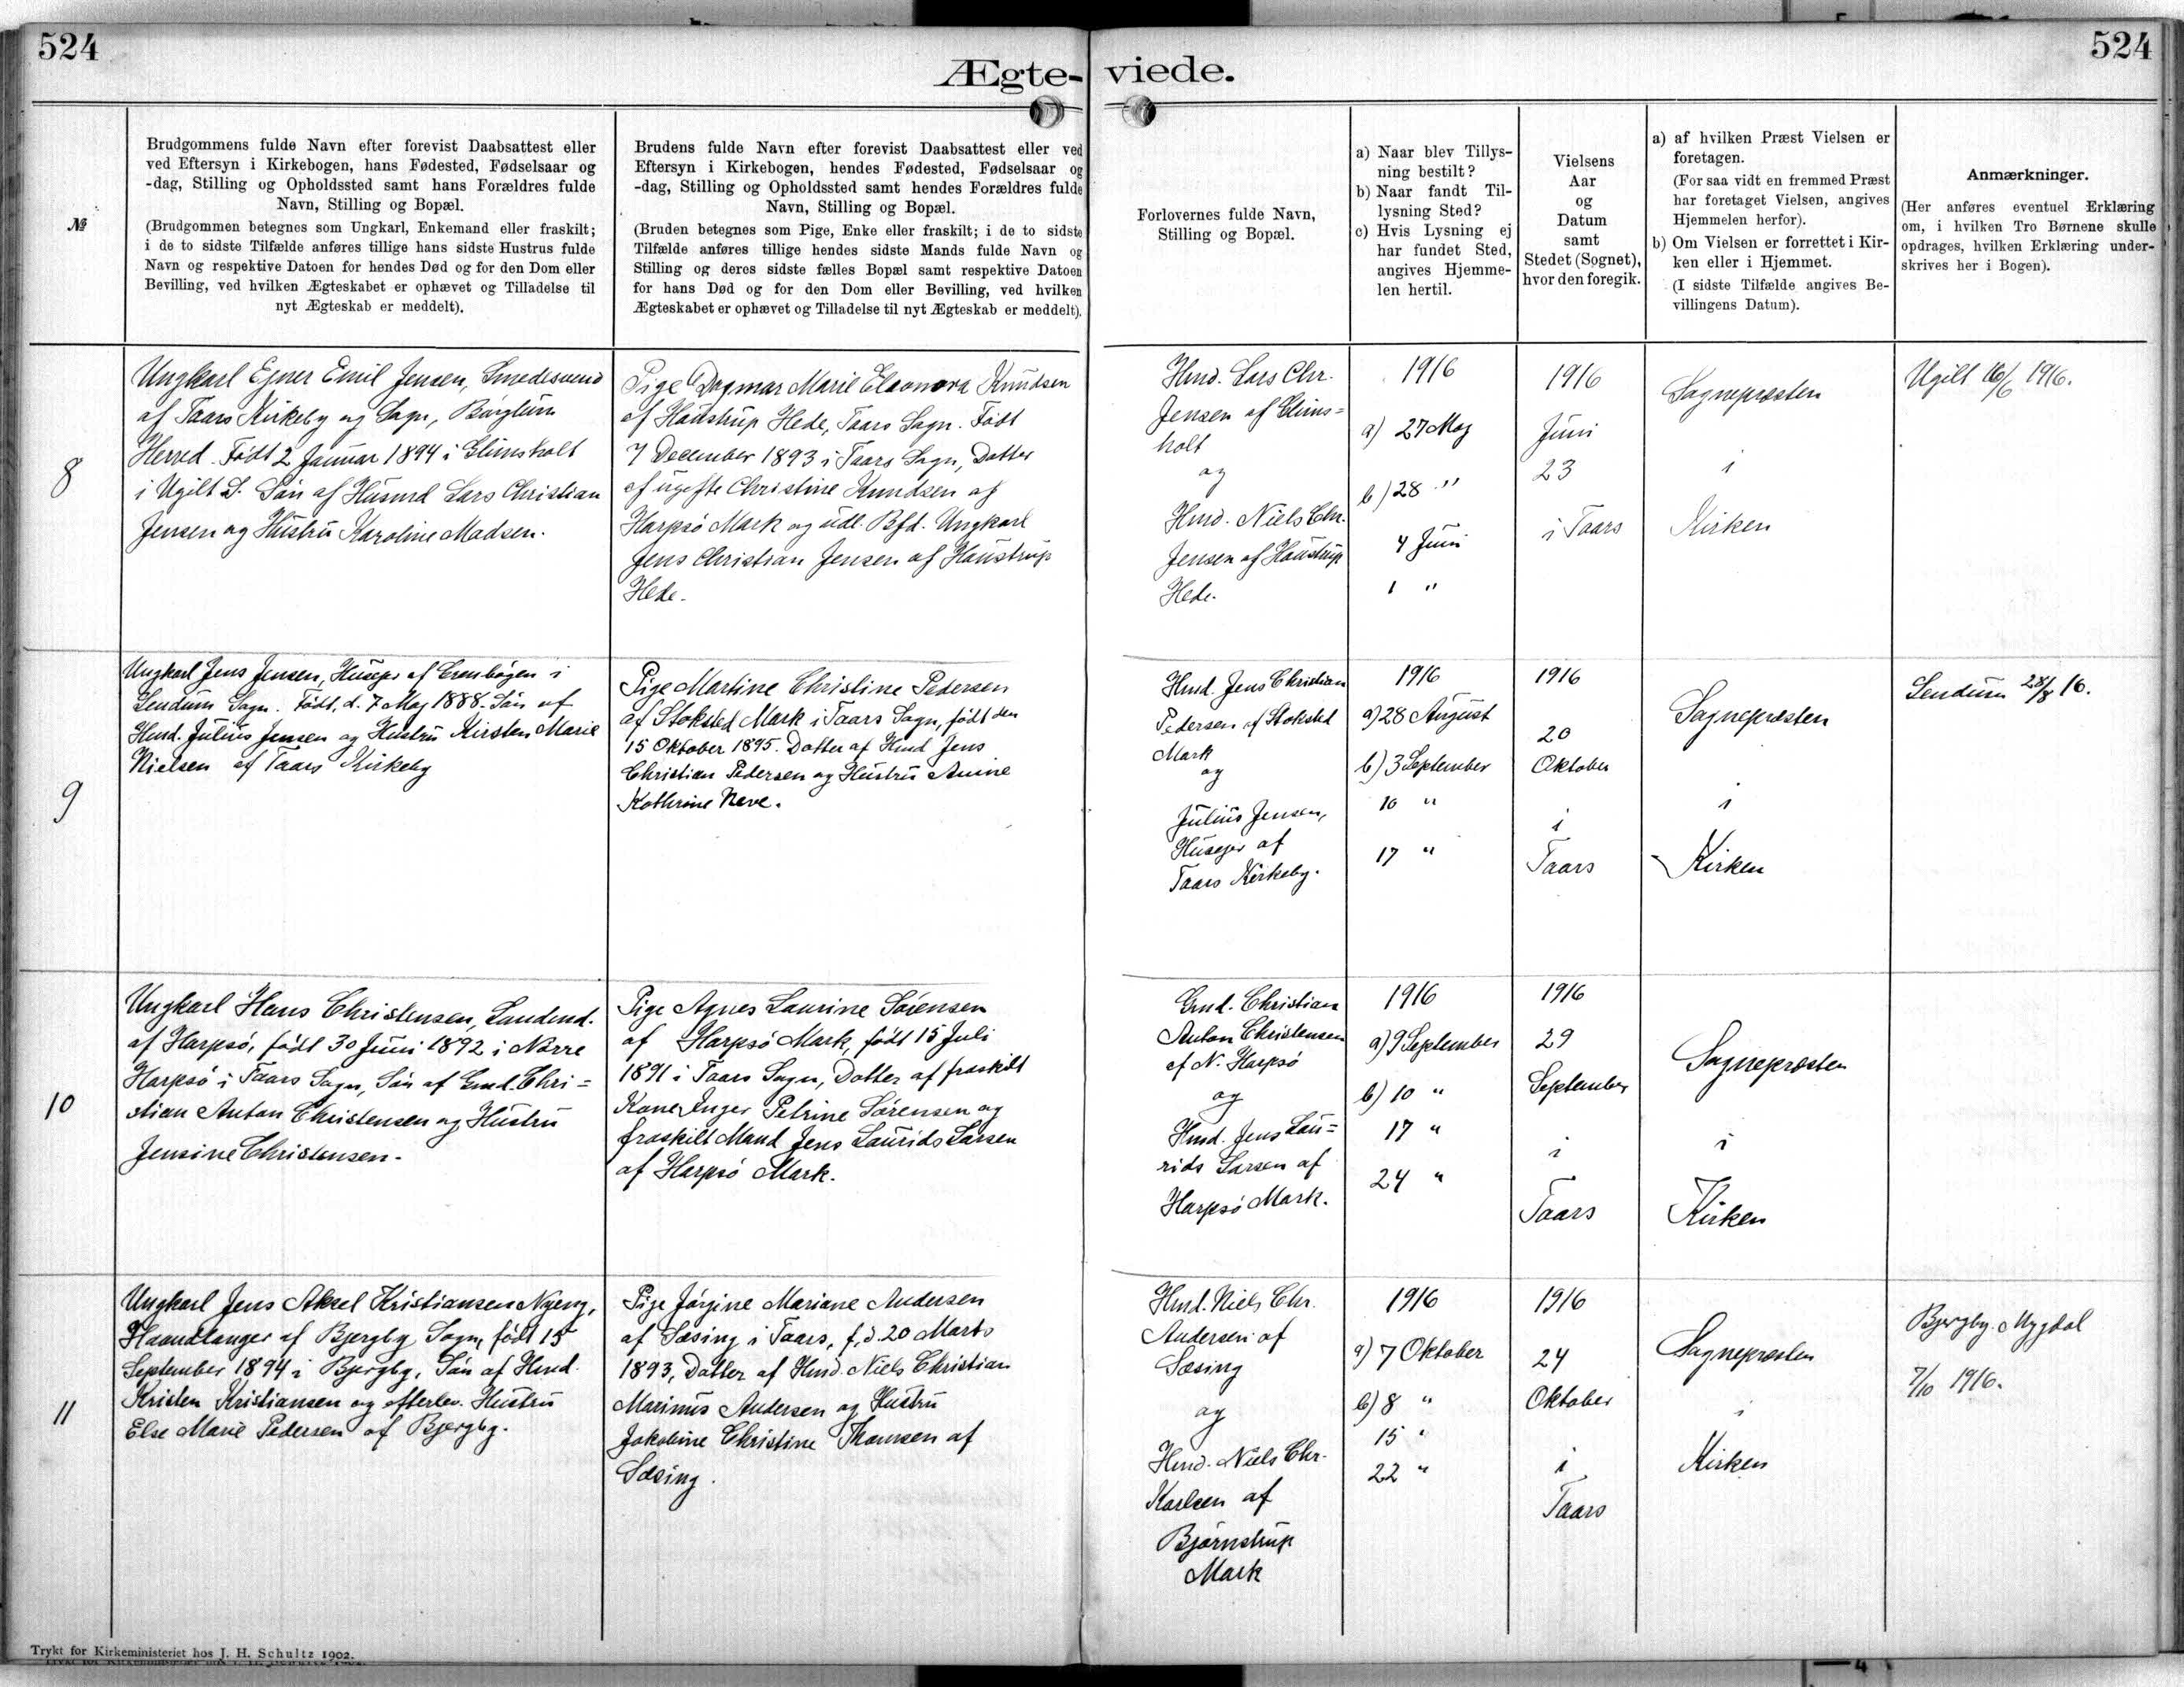 524
524
Ægte-viede.
№
Brudgommens fulde Navn efter forevist Daabsattest eller
ved Eftersyn i Kirkebogen, hans Fødested, Fødselsaar og
-dag, Stilling og Opholdssted samt hans Forældres fulde
Navn, Stilling og Bopæl.
(Brudgommen betegnes som Ungkarl, Enkemand eller fraskilt;
i de to sidste Tilfælde anføres tillige hans sidste Hustrus fulde
Navn og respektive Datoen for hendes Død og for den Dom eller
Bevilling, ved hvilken Ægteskabet er ophævet og Tilladelse til
nyt Ægteskab er meddelt).
Brudens fulde Navn efter forevist Daabsattest eller ved
Eftersyn i Kirkebogen, hendes Fødested, Fødselsaar og
-dag, Stilling og Opholdssted samt hendes Forældres fulde
Navn, Stilling og Bopæl.
(Bruden betegnes som Pige, Enke eller fraskilt; i de to sidste
Tilfælde anføres tillige hendes sidste Mands fulde Navn og
Stilling og deres sidste fælles Bopæl samt respektive Datoen
for hans Død og for den Dom eller Bevilling, ved hvilken
Ægteskabet er ophævet og Tilladelse til nyt Ægteskab er meddelt).
Forlovernes fulde Navn,
Stilling og Bopæl.
a) Naar blev Tillys-
ning bestilt?
b) Naar fandt Til-
lysning Sted?
c) Hvis Lysning ej
har fundet Sted,
angives Hjemme-
len hertil.
Vielsens
Aar
og
Datum
samt
Stedet (Sognet),
hvor den foregik.
a) af hvilken Præst Vielsen er
foretagen.
(For saa vidt en fremmed Præst
har foretaget Vielsen, angives
Hjemmelen herfor).
b) Om Vielsen er forrettet i Kir-
ken eller i Hjemmet.
(I sidste Tilfælde angives Be-
villingens Datum).
Anmærkninger.
(Her anføres eventuel Erklæring
om, i hvilken Tro Børnene skulle
opdrages, hvilken Erklæring under-
skrives her i Bogen).
8
Ungkarl Ejner Emil Jensen, Smedesvend
af Taars Kirkeby og Sogn, Børglum
Herred. Født 2 Januar 1894 i Glimsholt
i Ugilt S. Søn af Husmd Lars Christian
Jensen og Hustru Karoline Madsen.
Pige Dagmar Marie Elaonora Knudsen
af Haustrup Hede, Taars Sogn. Født
7 December 1893 i Taars Sogn, Datter
af ugifte Christine Knudsen af
Harpsø Mark og udl. Bfd. Ungkarl
Jens Christian Jensen af Haustrup
Hede.
Hmd. Lars Chr.
Jensen af Glims=
holt
og
Hmd. Niels Chr.
Jensen af Haustrup
Hede.
1916
a) 27 Maj
b) 28 "
4 Juni
1 "
1916
Juni
23
i Taars
Sognepræsten
i
Kirken
Ugilt 16/6 1916.
9
Ungkarl Jens Jensen, Husejer af Grenbøgen i
Sendum Sogn. Født d. 7 Maj 1888. Søn af
Hmd. Julius Jensen og Hustru Kirsten Marie
Nielsen af Taars Kirkeby
Pige Martine Christine Pedersen
af Stoksted Mark i Taars Sogn, født den
15 Oktober 1895. Datter af Hmd Jens
Christian Pedersen og Hustru Anine
Kathrine Neve.
Hmd. Jens Christian
Pedersen af Stoksted
Mark
og
Julius Jensen,
Husejer af
Taars Kirkeby.
1916
a) 28 August
b) 3 September
10 "
17 "
1916
20
Oktober
i
Taars
Sognepræsten
i
Kirken
Sendum 28/8 16.
10
Ungkarl Hans Christensen, Landmd.
af Harpsø, født 30 Juni 1892 i Nørre
Harpsø i Taars Sogn, Søn af Gmd. Chri=
stian Anton Christensen og Hustru
Jensine Christensen.
Pige Agnes Laurine Sørensen
af Harpsø Mark, født 15 Juli
1891 i Taars Sogn, Datter af fraskilt
Kone Inger Petrine Sørensen og
fraskilt Mand Jens Laurids Larsen
af Harpsø Mark.
Gmd. Christian
Anton Christensen
af N. Harpsø
og
Hmd. Jens Lau=
rids Larsen af
Harpsø Mark.
1916
a) 9 September
b) 10 "
17 "
24 "
1916
29
September
i
Taars
Sognepræsten
i
Kirken
11
Ungkarl Jens Aksel Kristiansen Nyeng,
Haandlanger af Bjergby Sogn, født 15
September 1894 i Bjergby, Søn af Hmd.
Kristen Kristiansen og efterlev. Hustru
Else Marie Pedersen af Bjergby.
Pige Jørgine Mariane Andersen
af Sæsing i Taars, f. d. 20 Marts
1893, Datter af Hmd. Niels Christian
Marinus Andersen og Hustru
Jakobine Christine Thomsen af
Sæsing.
Hmd. Niels Chr.
Andersen af
Sæsing
og
Hmd. Niels Chr.
Karlsen af
Bjørnstrup
Mark
1916
a) 7 Oktober
b) 8 "
15 "
22 "
1916
24
Oktober
i
Taars
Sognepræsten
i
Kirken
Bjergby-Mygdal
7/10 1916.
Trykt for Kirkeministeriet hos J. H. Schultz 1902.